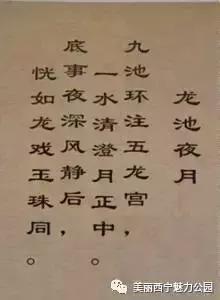 龙池夜月
九池环注五龙宫，
一水清澄月正中。
底事夜深风静后，
恍如龙戏玉珠同。
美丽西宁魅力公园